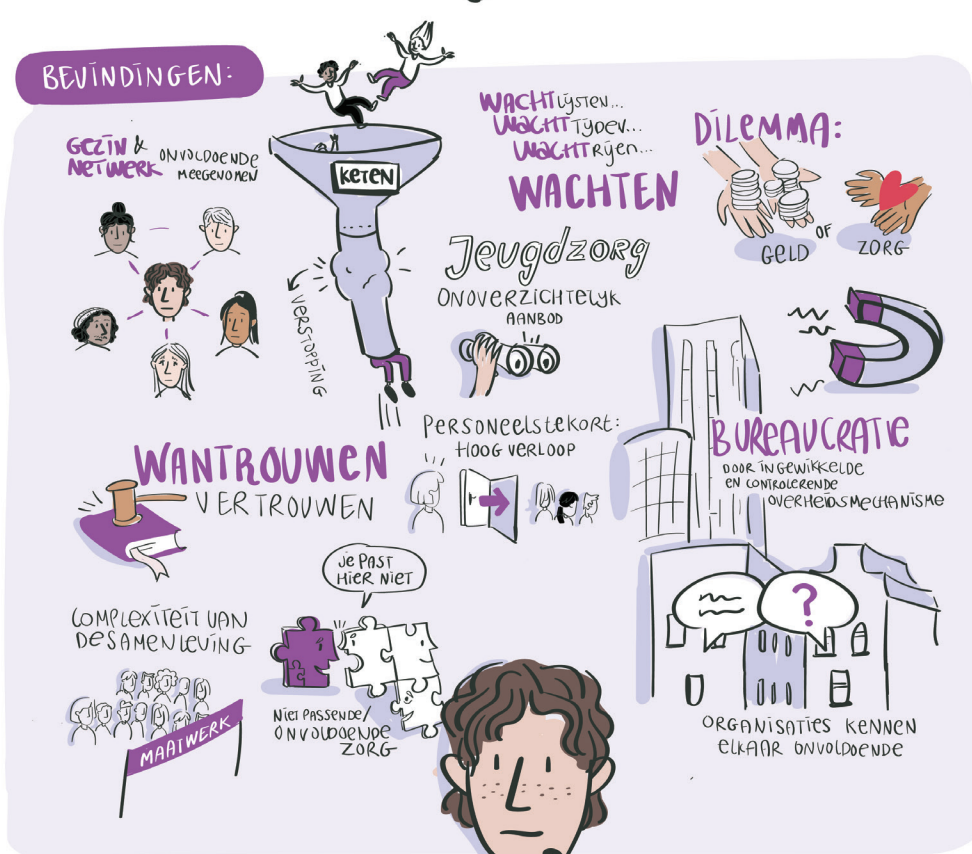 BEVINDINGEN:
GEZIN &
NETWERK
ONVOLDOENDE
MEEGENOMEN
KETEN
VERSTOPPING
WACHTLIJSTEN...
WACHTTIJDEN...
WACHTRIJEN...
WACHTEN
DILEMMA:
GELD
OF
ZORG
Jeugdzorg
ONOVERZICHTELIJK
AANBOD
PERSONEELSTEKORT:
HOOG VERLOOP
BUREAUCRATIE
DOOR INGEWIKKELDE
EN CONTROLERENDE
OVERHEIDSMECHANISME
WANTROUWEN
VERTROUWEN
JE PAST
HIER NIET
COMPLEXITEIT VAN
DE SAMENLEVING
MAATWERK
NIET PASSENDE/
ONVOLDOENDE
ZORG
?
ORGANISATIES KENNEN
ELKAAR ONVOLDOENDE